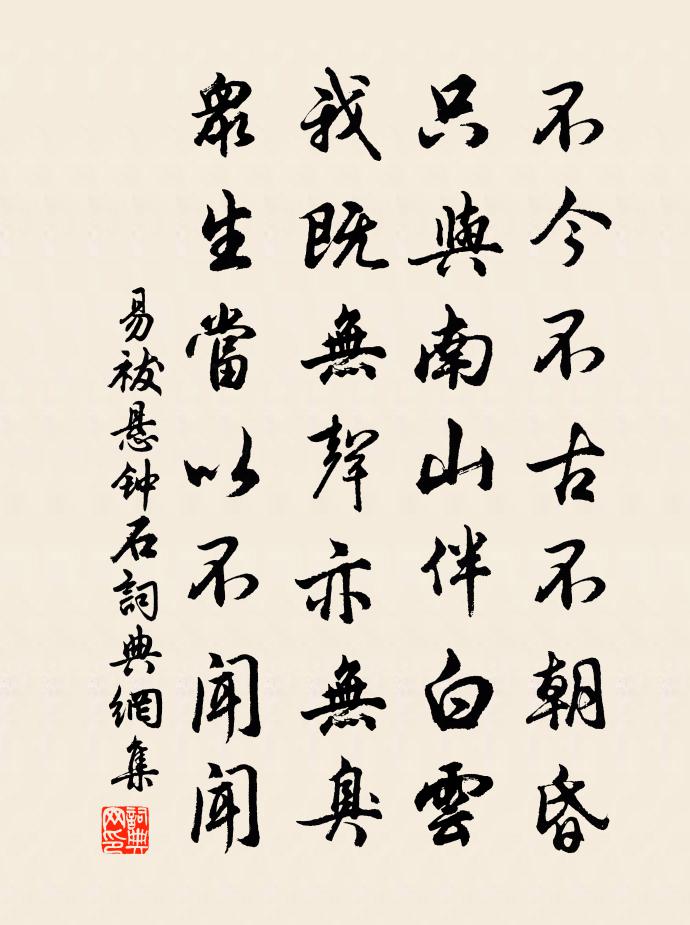 不今不古不朝昏
只與南山伴白雲
我既無聲亦無臭
眾生當以不聞聞
易祓悬钟石詞典網集
詞典網印